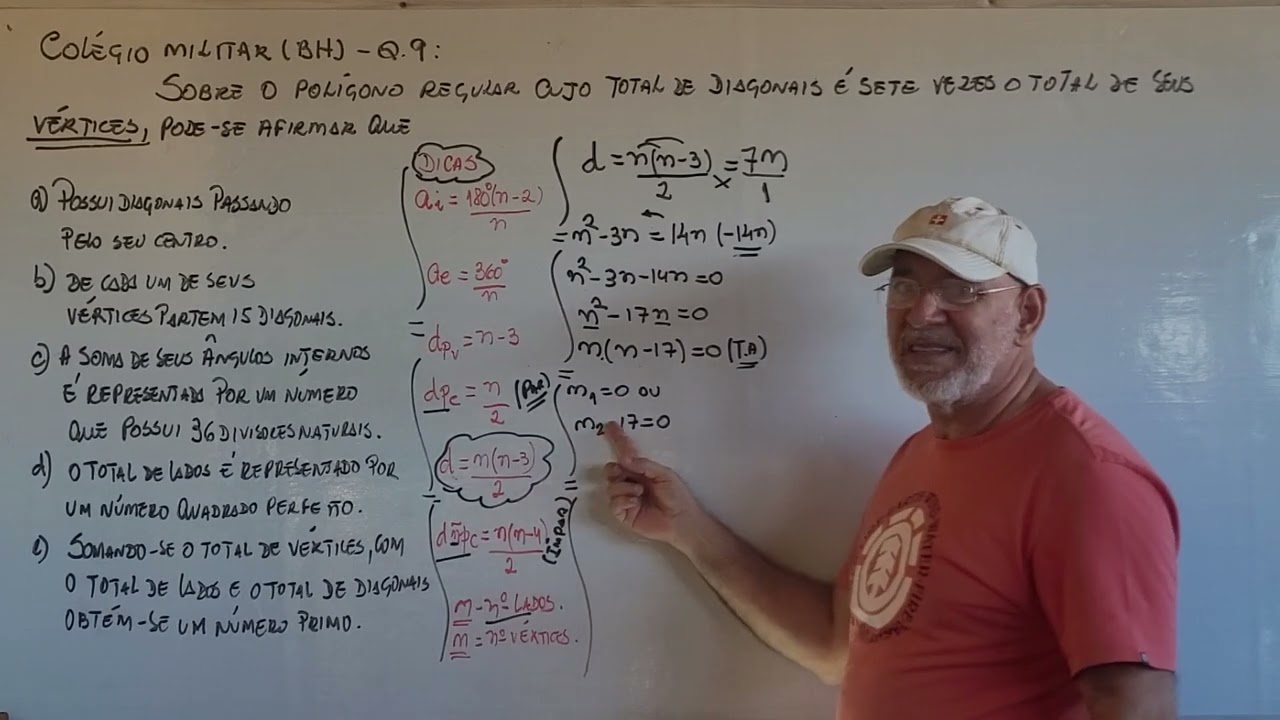 COLÉGIO MILITAR (BH) - Q.9:
SOBRE O POLÍGONO REGULAR CUJO TOTAL DE DIAGONAIS É SETE VEZES O TOTAL DE SEUS
VÉRTICES, PODE-SE AFIRMAR QUE
a) POSSUI DIAGONAIS PASSANDO
PELO SEU CENTRO.
b) DE CADA UM DE SEUS
VÉRTICES PARTEM 15 DIAGONAIS.
c) A SOMA DE SEUS ÂNGULOS INTERNOS
É REPRESENTADA POR UM NÚMERO
QUE POSSUI 36 DIVISORES NATURAIS.
d) O TOTAL DE LADOS É REPRESENTADO POR
UM NÚMERO QUADRADO PERFEITO.
e) SOMANDO-SE O TOTAL DE VÉRTICES, COM
O TOTAL DE LADOS E O TOTAL DE DIAGONAIS
OBTÉM-SE UM NÚMERO PRIMO.
DICAS
ai = 180°(n-2)
n
ae = 360°
n
dpv = n-3
dpc = n (PAR)
2
d = n(n-3)
2
dñpc = n(n-4) (ÍMPAR)
2
n - nº LADOS.
n = nº VÉRTICES.
d = n(n-3) = 7n
2 × 1
= n²-3n = 14n (-14n)
n²-3n-14n=0
n²-17n=0
n(n-17)=0 (T.A)
n1=0 OU
n2-17=0